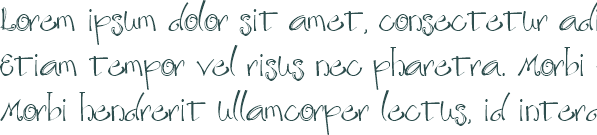 Lorem ipsum dolor sit amet, consectetur adi
Etiam tempor vel risus nec pharetra. Morbi
Morbi hendrerit ullamcorper lectus, id interd